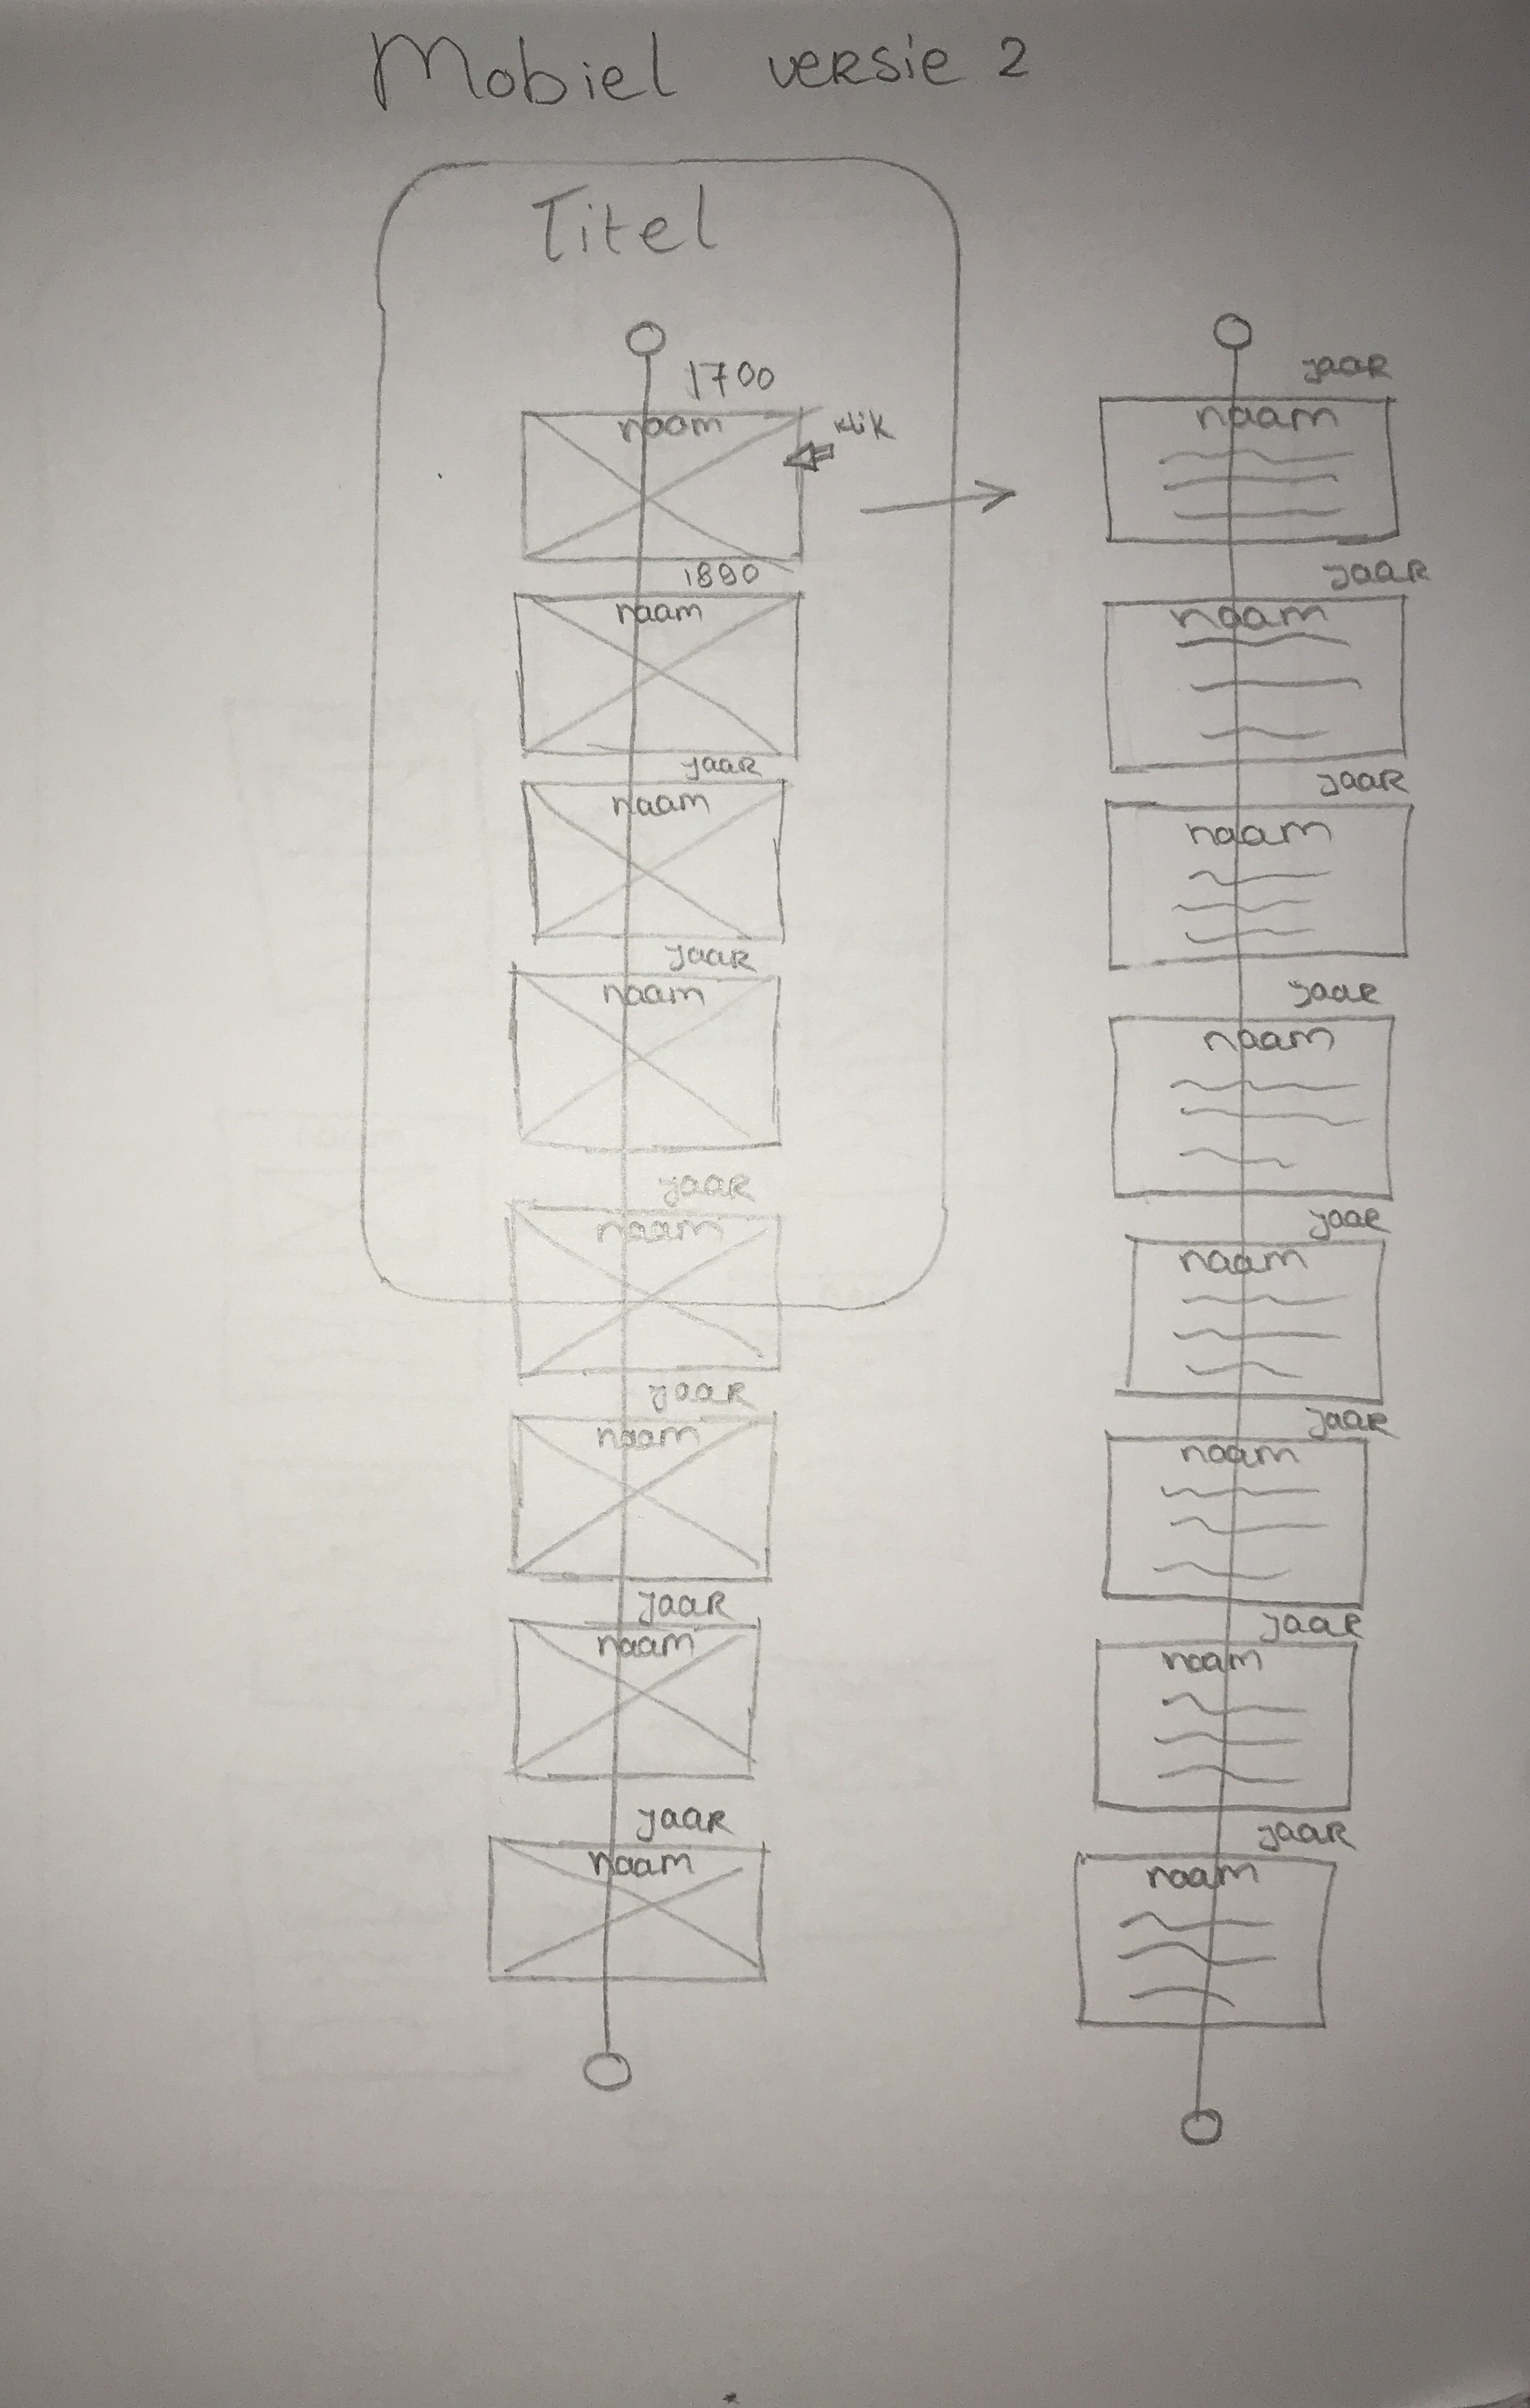 Mobiel versie 2
Titel
1700
naam
klik
1890
naam
jaar
naam
jaar
naam
jaar
naam
jaar
naam
jaar
naam
jaar
naam
jaar
naam
jaar
naam
jaar
naam
jaar
naam
jaar
naam
jaar
naam
jaar
naam
jaar
naam